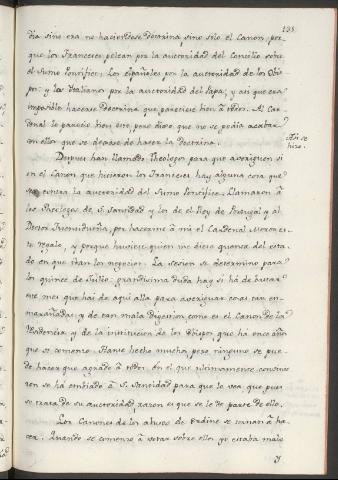 133.
dia sino era no haciendose doctrina, sino solo el Canon; por
que los Franceses pelean por la autoridad del Concilio sobre
el Sumo Pontifice; Los Españoles por la autoridad de los Obis
pos; y los Italianos por la autoridad del Papa; y asi que era
imposible hacerse doctrina que pareciese bien à todos. Al Car
denal le pareció bien esto, pero dixo, que no se podia acabar
con ellos que se dexase de hacer la doctrina.
Asi se
hizo.
Despues han llamado Theologos para que averiguen si
en el Canon que hicieron los Franceses hay alguna cosa que
sea contra la autoridad del Sumo Pontifice. Llamaron à
los Theologos de S. Santidad y los de el Rey de Portugal y al
Doctor Fuentidueña, por hacerme à mi el Cardenal Moron es
te regalo, y porque huviese quien me diese quenta del esta
do en que iban los negocios. La sesion se determino para
los quince de Julio: grandisima duda hay si há de bastar
este mes que hai de aqui allá para averiguar cosas tan en
marañadas, y de tan mala digestion como es el Canon de la
Residencia y de la institucion de los Obispos que ha once años
que se comenzo. Hanse hecho muchos, pero ninguno se pue
de hacer que agrade à todos. En el que ultimamente convinie
ron se há embiado à S. Santidad para que le vea, que pues
se trata de su autoridad, razon es que se le de parte de ello.
Los Canones de los abusos de Ordine se tornan à ha
cer. Quando se comenzo à votar sobre ellos yo estaba malo
y